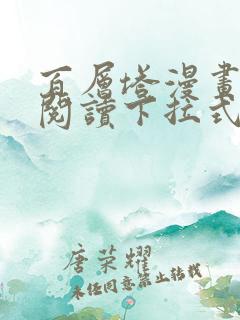 百層塔漫畫
閱讀下拉式
唐荣耀
未经同意禁止转载